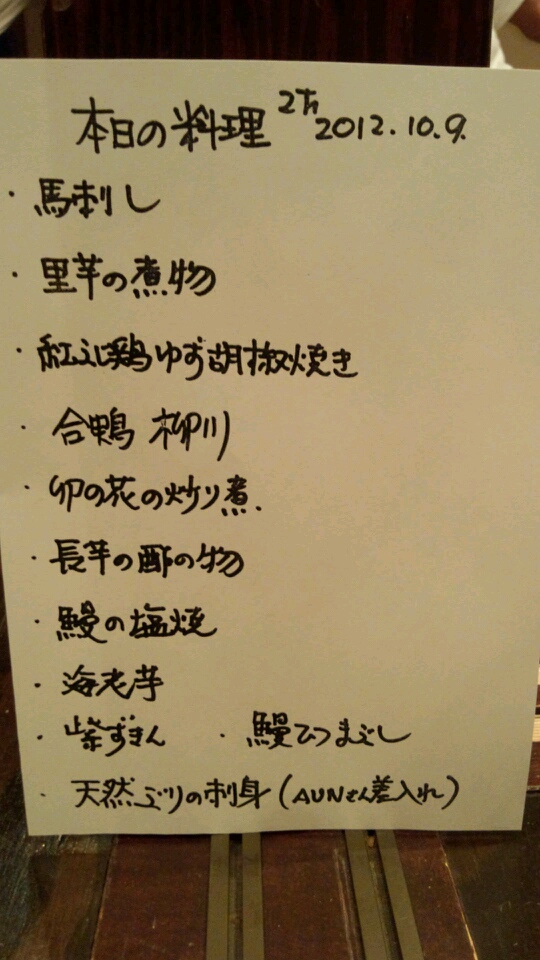 本日の料理 2012.10.9.
・馬刺し
・里芋の煮物
・紅ふじ鶏ゆず胡椒焼き
・合鴨 柳川
・卯の花の炒り煮.
・長芋の酢の物
・鰻の塩焼
・海老芋
・紫ずきん ・鰻ひつまぶし
・天然ぶりの刺身(AUNさん差入れ)